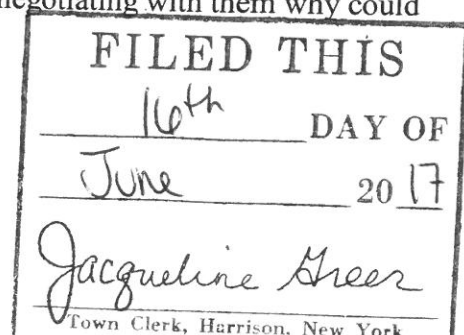 negotiating with them why could
FILED THIS
16th DAY OF
June 2017
Jacqueline Greer
Town Clerk, Harrison, New York